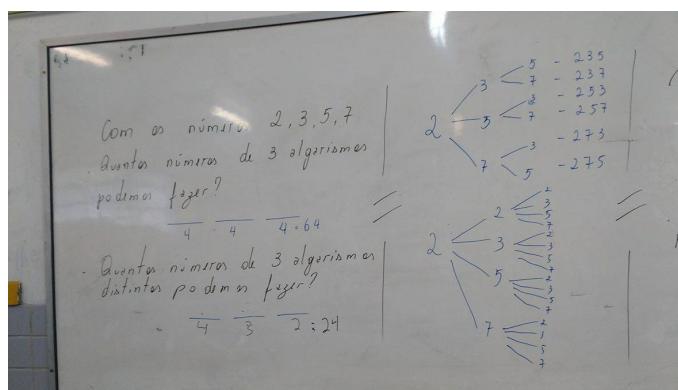 Com os números 2, 3, 5, 7
Quantos números de 3 algarismos
podemos fazer?
4 4 4 = 64
Quantos números de 3 algarismos
distintos podemos fazer?
4 3 2 = 24
2
3
5 - 235
7 - 237
5
3 - 253
7 - 257
7
3 - 273
5 - 275
2
2
2
3
5
7
3
2
3
5
7
5
2
3
5
7
7
2
3
5
7